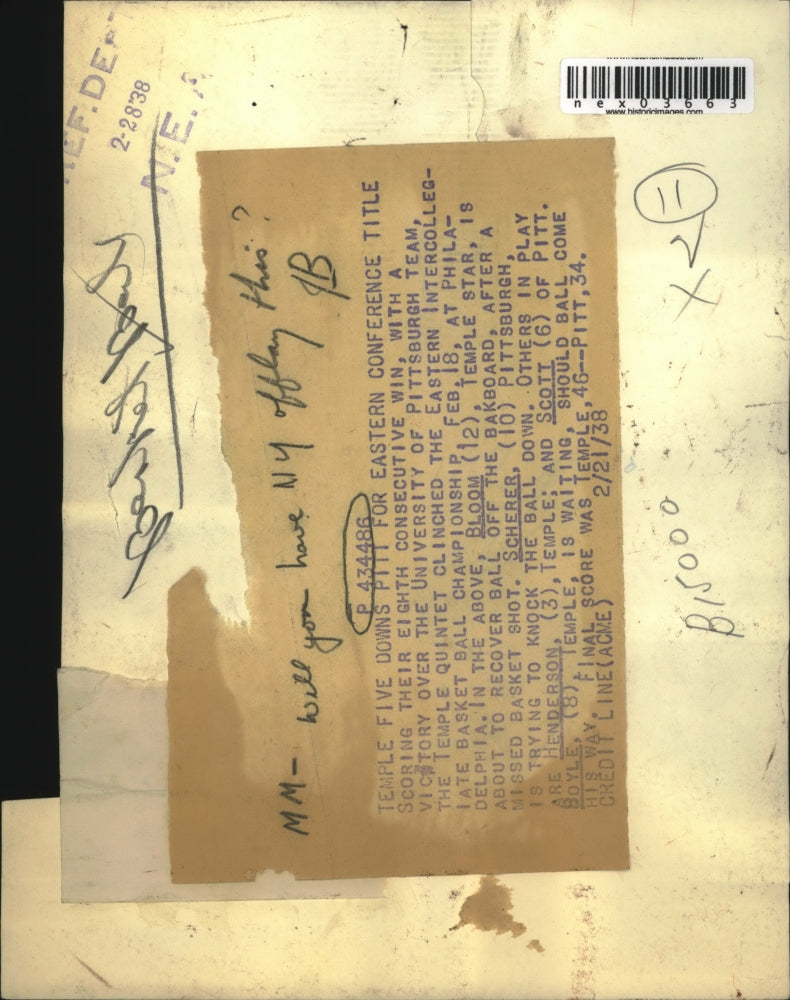 REF.DEPT
2-28'38
N.E.A
www.historicimages.com
nex03663
www.historicimages.com
11
X2
B15000
MM- Will you have NY offlay this?
JB
P 434486
TEMPLE FIVE DOWNS PITT FOR EASTERN CONFERENCE TITLE
SCORING THEIR EIGHTH CONSECUTIVE WIN, WITH A
VICTORY OVER THE UNIVERSITY OF PITTSBURGH TEAM,
THE TEMPLE QUINTET CLINCHED THE EASTERN INTERCOLLEG-
IATE BASKET BALL CHAMPIONSHIP, FEB. 18, AT PHILA-
DELPHIA. IN THE ABOVE, BLOOM (12), TEMPLE STAR, IS
ABOUT TO RECOVER BALL OFF THE BAKBOARD, AFTER A
MISSED BASKET SHOT. SCHERER, (10) PITTSBURGH,
IS TRYING TO KNOCK THE BALL DOWN. OTHERS IN PLAY
ARE HENDERSON, (3), TEMPLE; AND SCOTT (6) OF PITT.
BOYLE, (8), TEMPLE, IS WAITING, SHOULD BALL COME
HIS WAY. FINAL SCORE WAS TEMPLE, 46--PITT, 34.
CREDIT LINE(ACME) 2/21/38